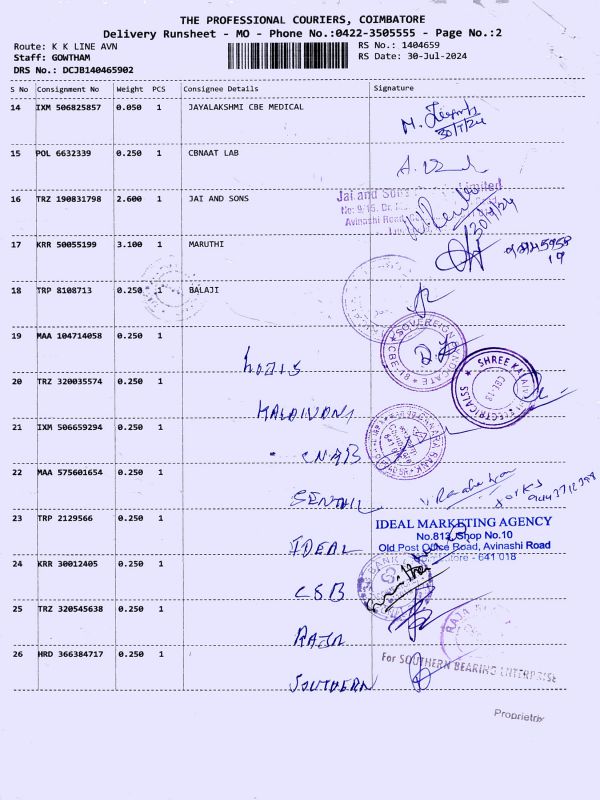 THE PROFESSIONAL COURIERS, COIMBATORE
Delivery Runsheet - MO - Phone No.:0422-3505555 - Page No.:2
Route: K K LINE AVN
RS No.: 1404659
Staff: GOWTHAM
RS Date: 30-Jul-2024
DRS No.: DCJB140465902
S No Consignment No Weight PCS Consignee Details Signature
14 IXM 506825857 0.050 1 JAYALAKSHMI CBE MEDICAL
30/7/24
15 POL 6632339 0.250 1 CBNAAT LAB
16 TRZ 190831798 2.600 1 JAI AND SONS
Jai and Sons Limited
No: 9/15, Dr.
Avinashi Road
30/7/24
17 KRR 50055199 3.100 1 MARUTHI
18 TRP 8108713 0.250 1 BALAJI
19 MAA 104714058 0.250 1
SOVEREIGN SYNDICATE CBE-18
20 TRZ 320035574 0.250 1
SHREE ELECTRICALSS CBE-18
MALDIVON
21 IXM 506659294 0.250 1
CNAB
CANARA BANK
22 MAA 575601654 0.250 1
SENTHIL
23 TRP 2129566 0.250 1
IDEAL
IDEAL MARKETING AGENCY
No.813, Shop No.10
Old Post Office Road, Avinashi Road
Coimbatore - 641 018
24 KRR 30012405 0.250 1
CSB
BANK
25 TRZ 320545638 0.250 1
RAJA
RAJA
26 HRD 366384717 0.250 1
SOUTHERN
For SOUTHERN BEARING ENTERPRISE
Proprietrix